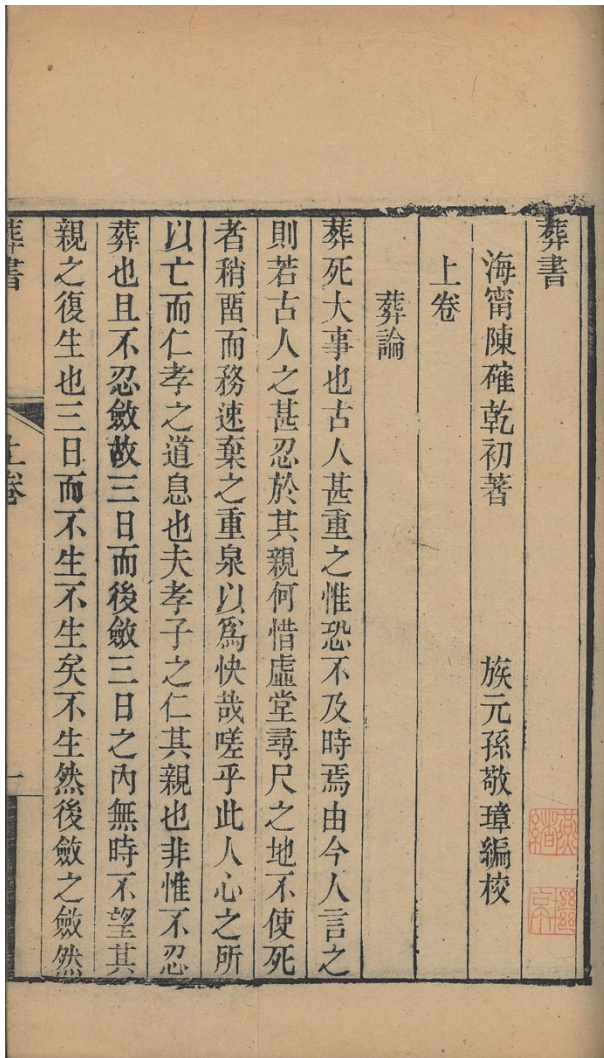 葬書
海甯陳確乾初著 族元孫敬璋編校
上卷
葬論
葬死大事也古人甚重之惟恐不及時焉由今人言之
則若古人之甚忍於其親何惜虛堂尋尺之地不使死
者稍畱而務速棄之重泉以爲快哉嗟乎此人心之所
以亡而仁孝之道息也夫孝子之仁其親也非惟不忍
葬也且不忍斂故三日而後斂三日之內無時不望其
親之復生也三日而不生不生矣不生然後斂之斂然
葬書 上卷 一